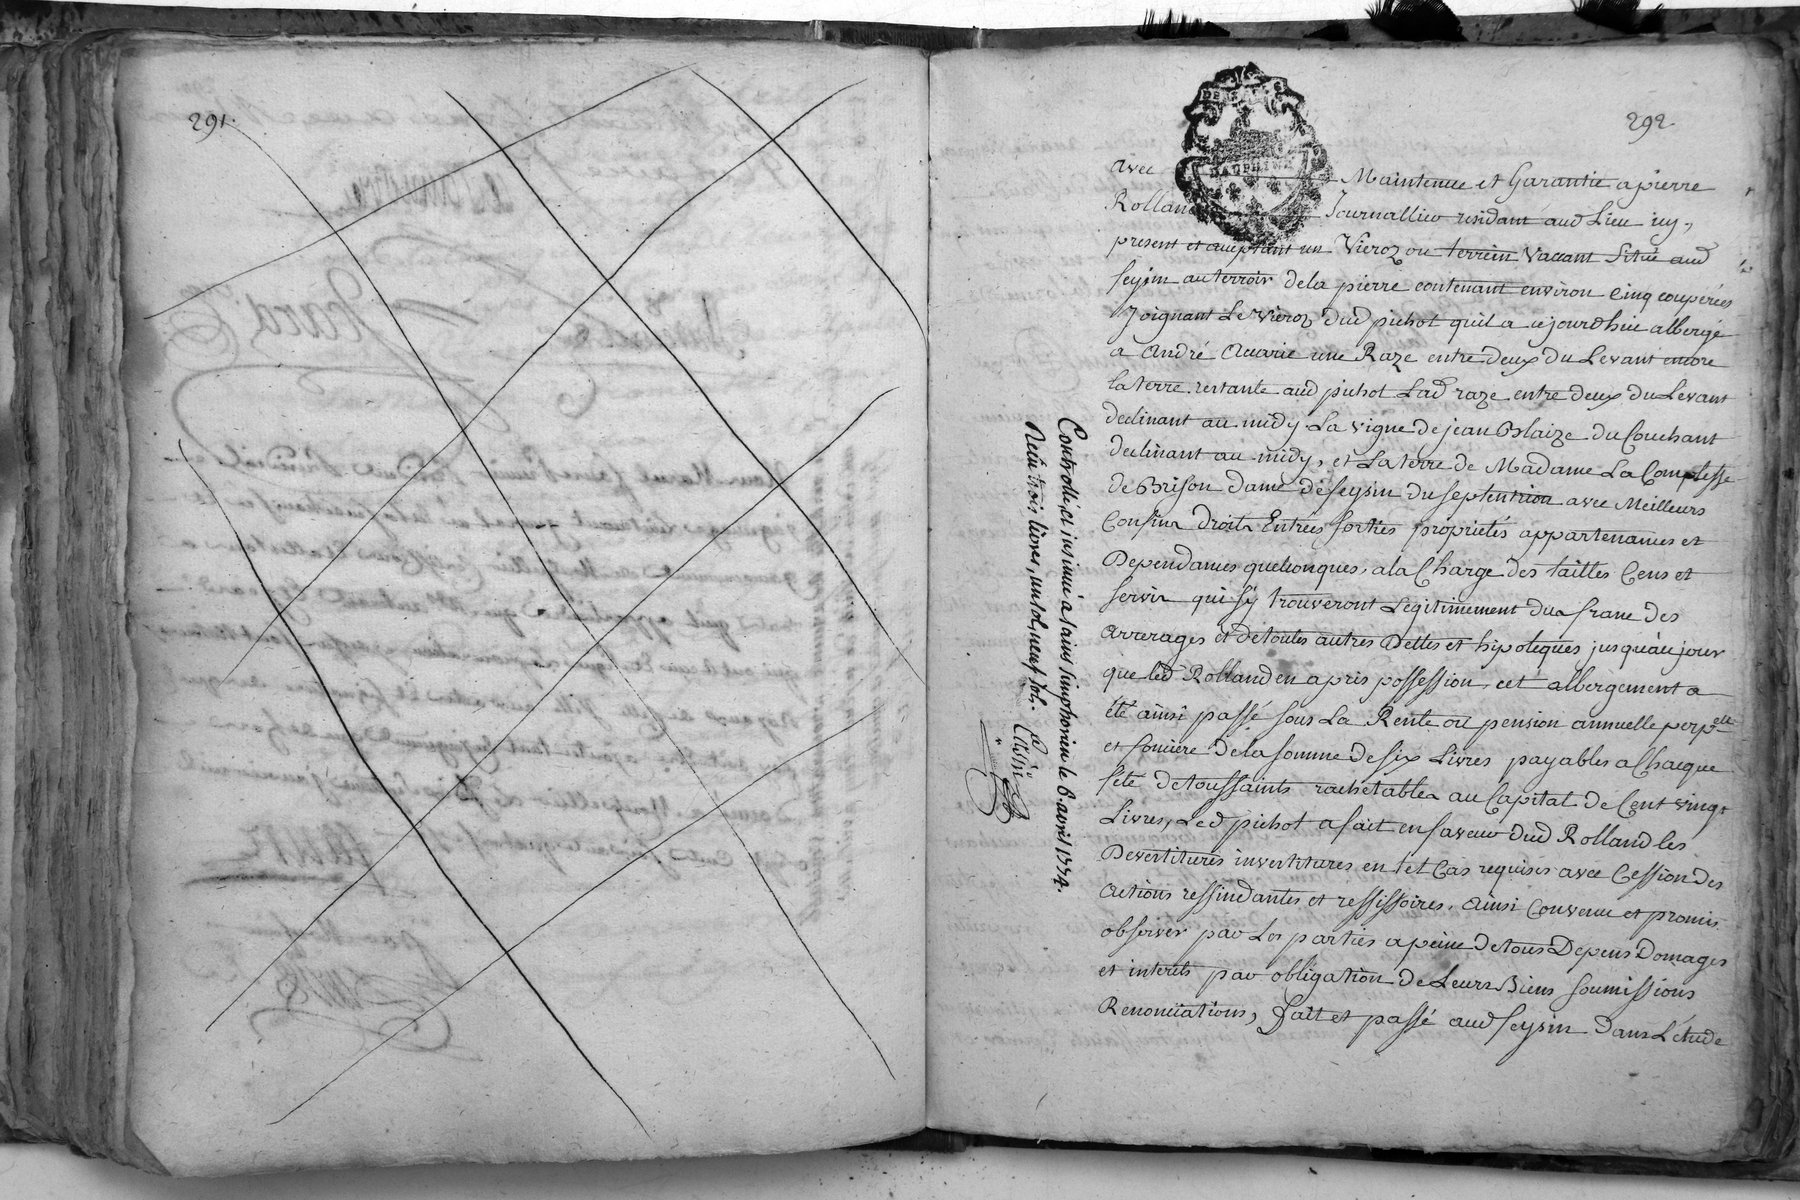 291.
292.
DEUX SOLS
DAUPHINÉ
avec Maintenue et Garantie a pierre
Rolland Journallier residant aud Lieu icy,
present et acceptant un Vieroz ou terrein Vaccant Situé aud
seysin au terroir de la pierre contenant environ Cinq couperées
Joignant Le Vieroz dud pichot quil a cejourdhui albergé
a André Avarie une Raze entre deux du Levant encore
la terre restante aud pichot Lad raze entre deux du Levant
declinant au midy La vigne de jean Blaize du Couchant
declinant au midy, et La terre de Madame La Comtesse
de Brison dame de seysin du septentrion avec Meilleurs
Confins droits Entrées sorties proprietés appartenances et
Dependances quelconques, a la Charge des tailles Cens et
servis qui s'y trouveront Legitimement dus franc des
arrerages et de toutes autres Dettes et hipoteques jusqu'au jour
que led Rolland en a pris possession, cet albergement a
été ainsi passé sous La Rente ou pension annuelle perp.elle
et fonciere de la somme de six Livres payables a Chacque
fete de toussaints rachetables au Capital de Cent vingt
Livres, Led pichot a fait en faveur dud Rolland les
Devertitures invertitures en tel Cas requises avec Cession des
actions ressindantes et ressissoires, ainsi Convenu et promis
observer par Les parties a peine de tous Depens Domages
et interets par obligation de Leurs Biens soumissions
Renonciations, Fait et passé aud seysin dans L'etude
Controllé, et insinué a saint simphorien le 6. avril 1774.
Recu trois livres, un sol, neuf sol.